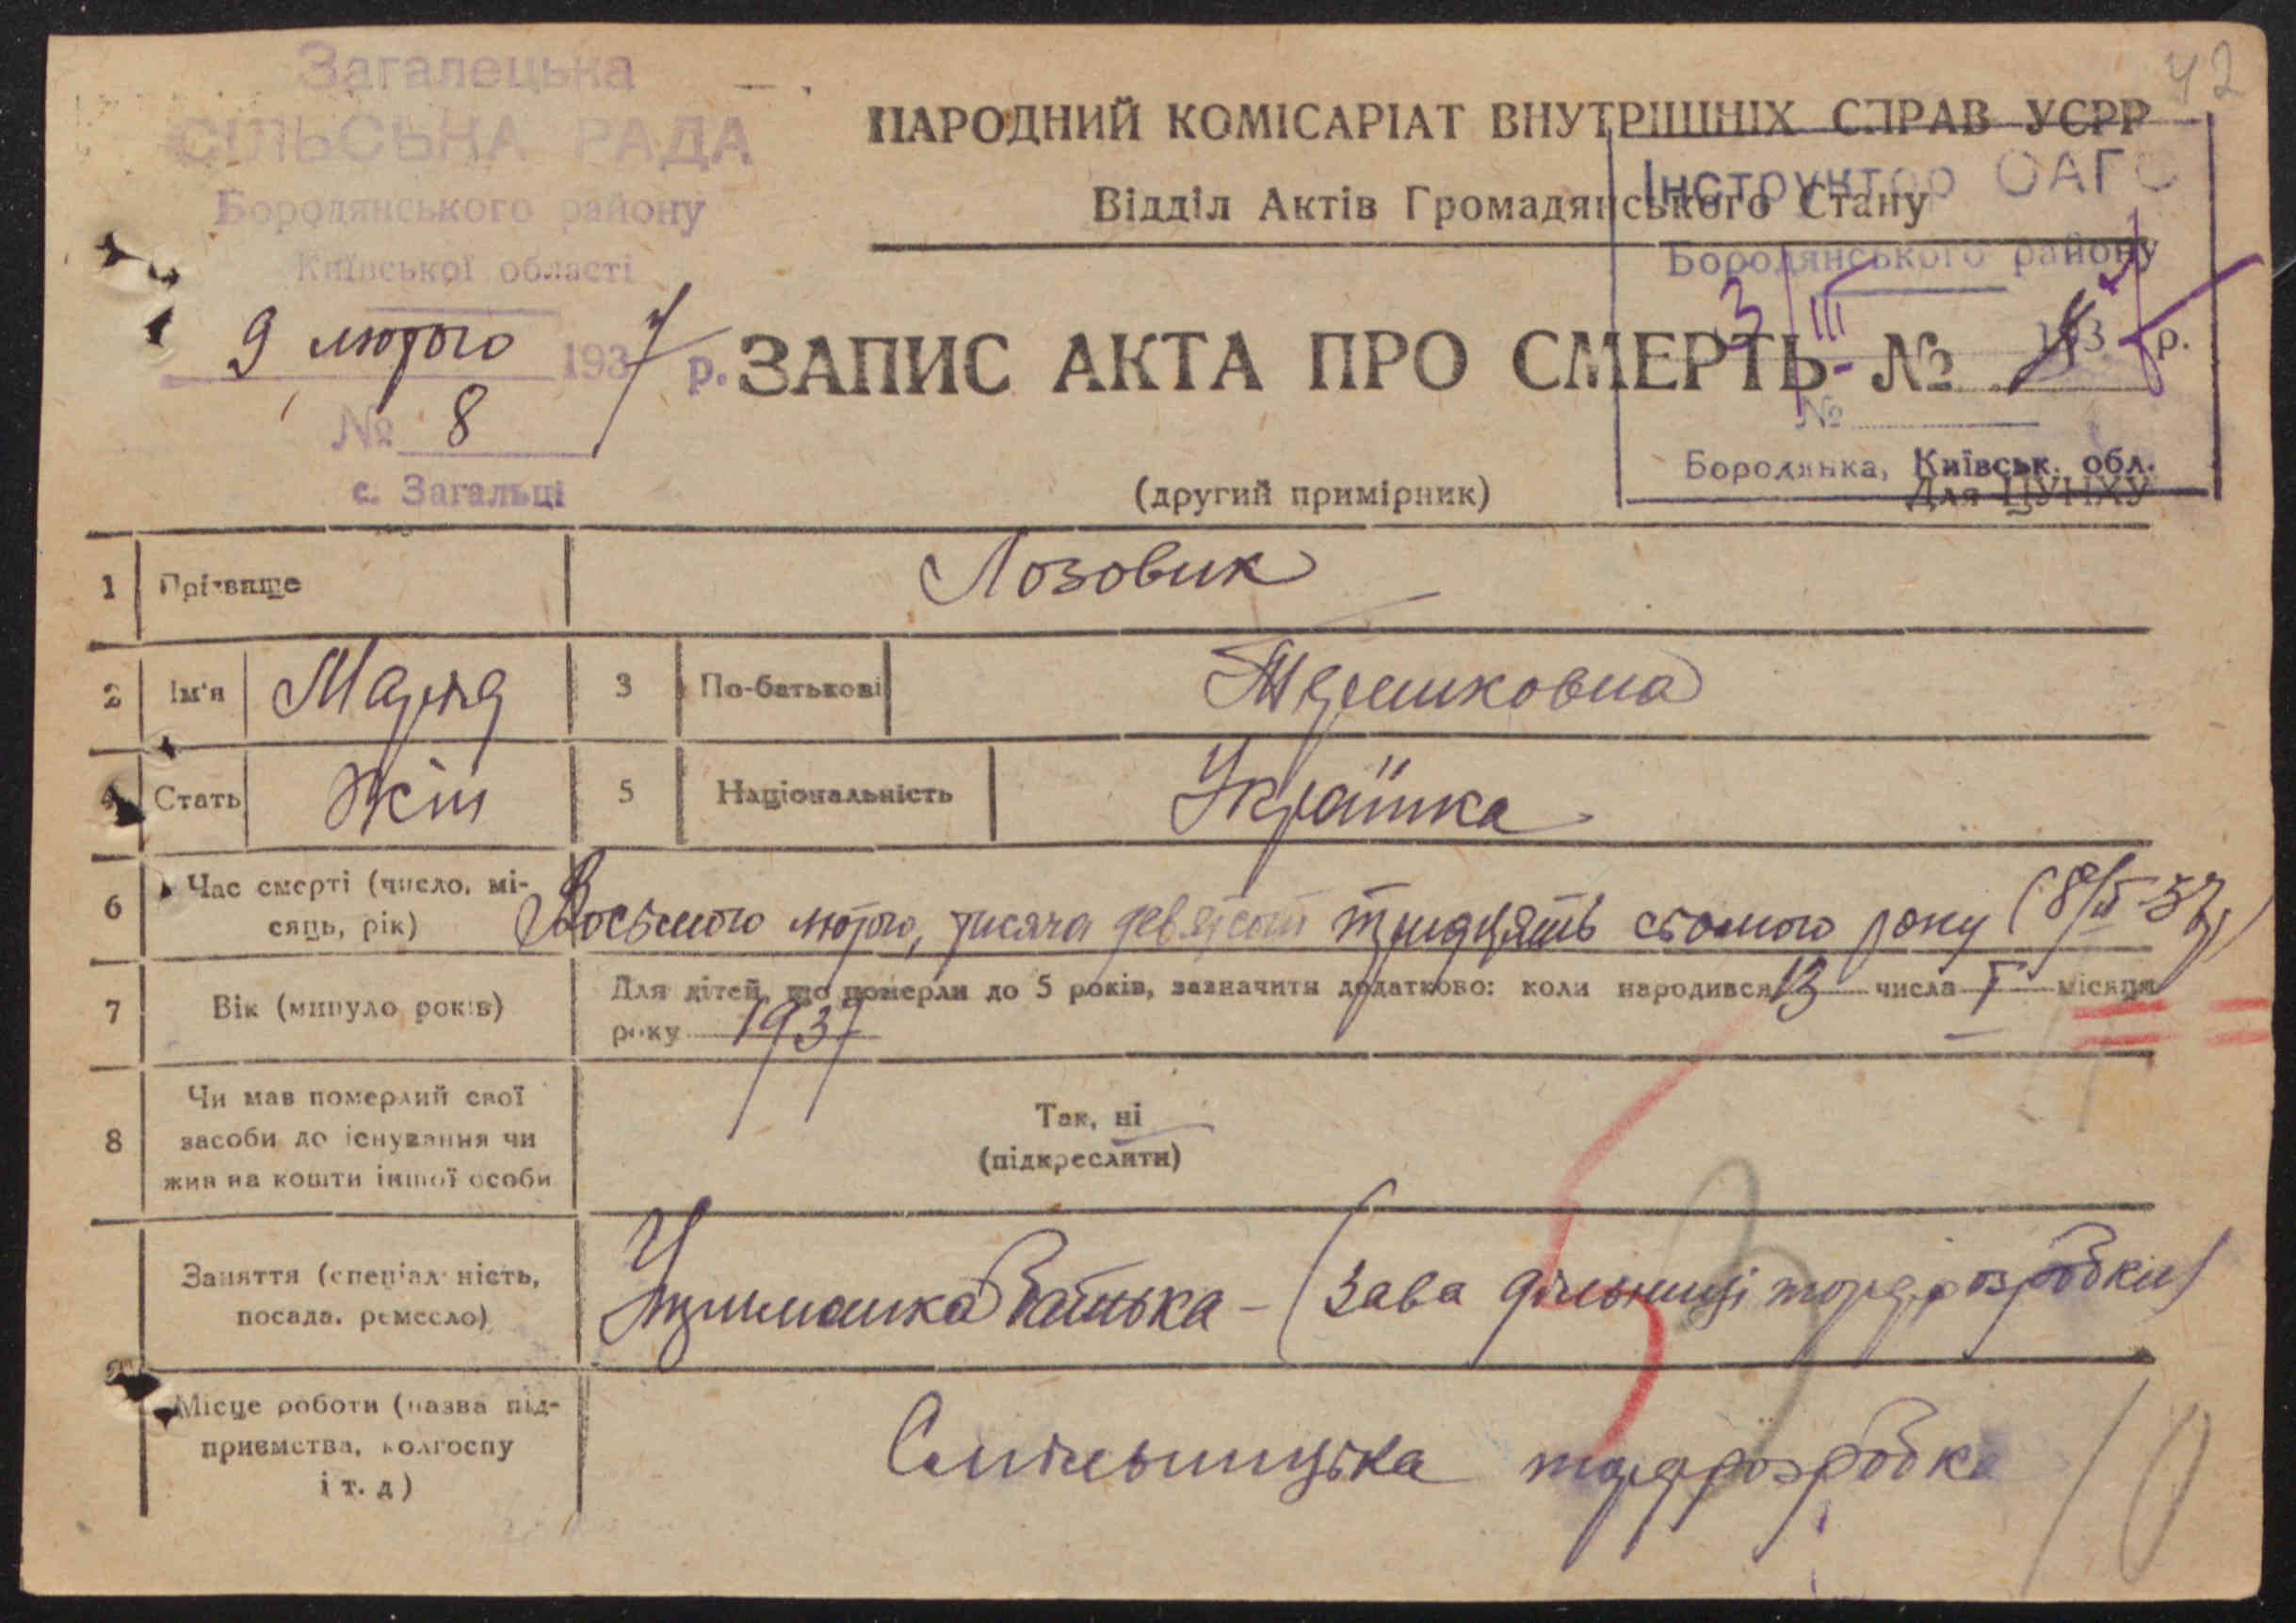 42
Загалецька
СІЛЬСЬКА РАДА
Бородянського району
Київської області
9 лютого 1937 р.
№ 8
с. Загальці
НАРОДНИЙ КОМІСАРІАТ ВНУТРІШНІХ СПРАВ УСРР
Відділ Актів Громадянського Стану
Інструктор ОАГС
Бородянського району
3/III 193 р.
№
Бородянка, Київськ. обл.
ЗАПИС АКТА ПРО СМЕРТЬ №
(другий примірник)
Для ЦУНХУ
1 Прізвище Лозовик
2 Ім'я Марія 3 По-батькові
4 Стать Жін 5 Національність Українка
6 Час смерті (число, мі-
сяць, рік) Восьмого лютого, тисяча девятсот тридцять сьомого року (8/II-37)
7 Вік (минуло років) Для дітей, що померли до 5 років, зазначити додатково: коли народився 13 числа I місяця
року 1937
8 Чи мав померлий свої
засоби до існування чи
жив на кошти іншої особи
Так, ні
(підкреслити)
Заняття (спеціальність,
посада, ремесло)
Утриманка Батька - (Зава дільниці торфорозробки)
9
Місце роботи (назва під-
приємства, колгоспу
і т. д)
торфорозробка